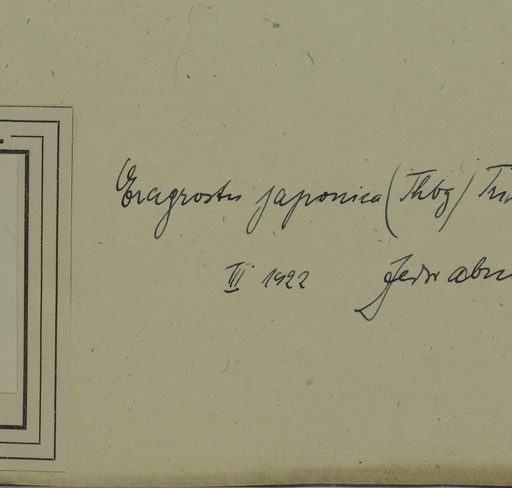 Eragrostis japonica (Thbg) Trin
III 1922 Jedwabn